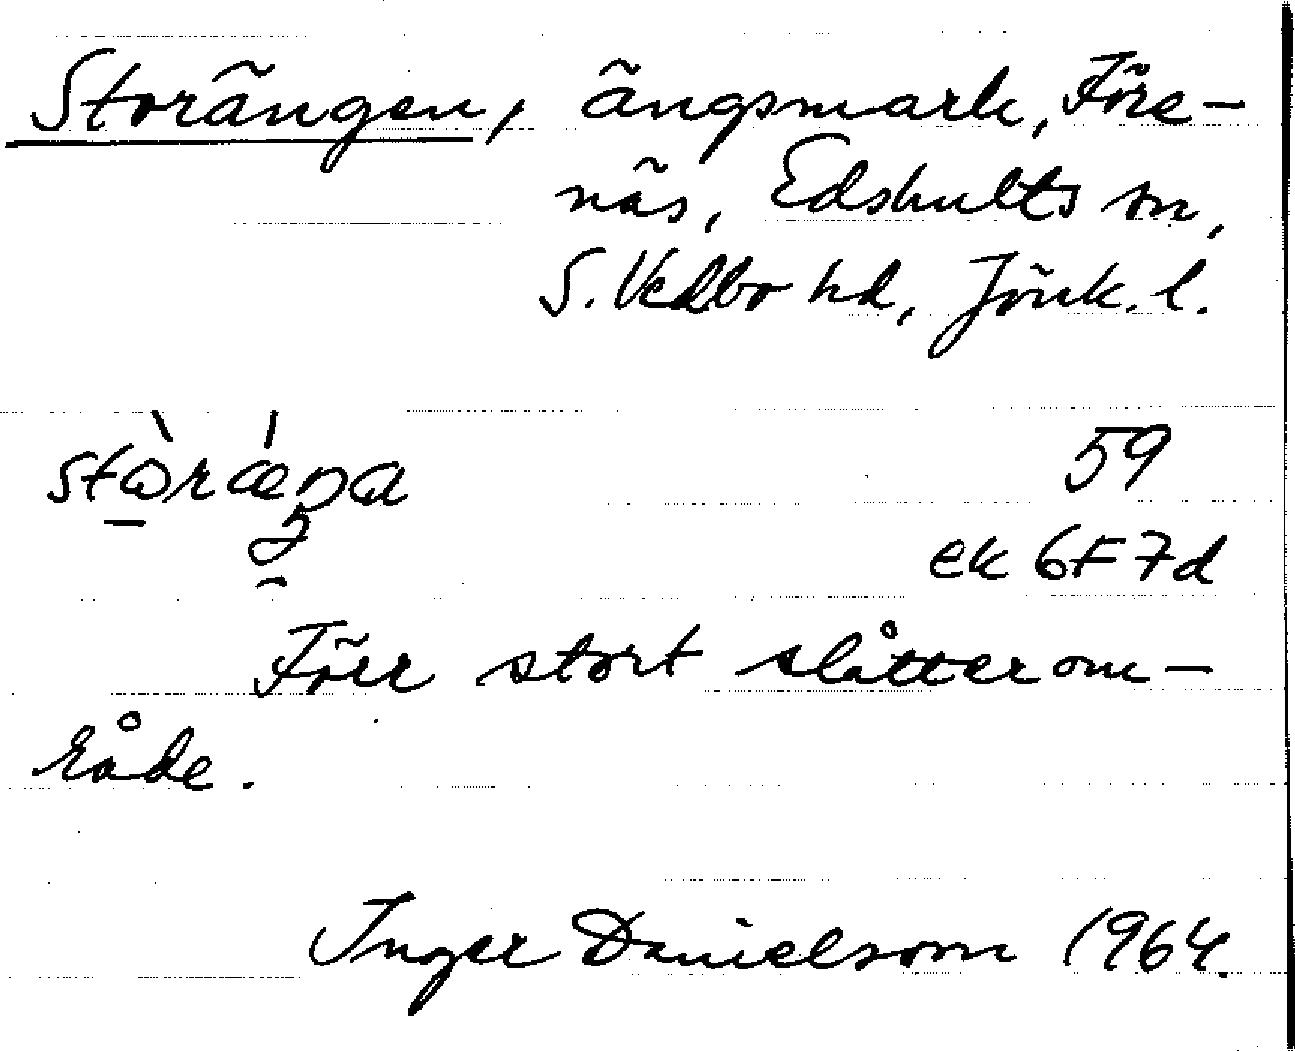 Storängen, ängsmark, Före-
näs, Edshults sn,
S. Vedbo hd, Jönk. l.
59
ek 6F7d
Förr stort slåtterom-
råde.
Inger Danielsson 1964.